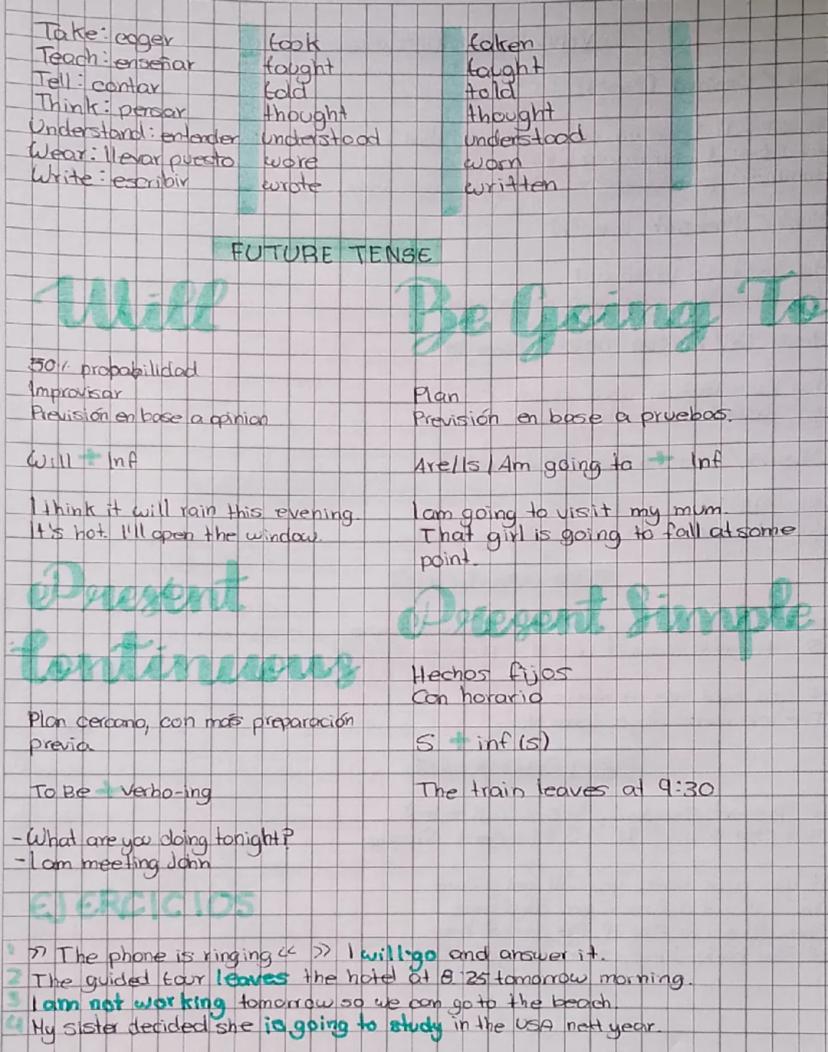 Take: coger took taken
Teach: enseñar taught taught
Tell: contar told told
Think: pensar thought thought
Understand: entender understood understood
Wear: llevar puesto wore worn
Write: escribir wrote written
FUTURE TENSE
Will
50% probabilidad
Improvisar
Previsión en base a opinion
Will + Inf
I think it will rain this evening.
It's hot. I'll open the window.
Be Going To
Plan
Previsión en base a pruebas.
Are/Is/Am going to + Inf
I am going to visit my mum.
That girl is going to fall at some
point.
Present
Continuous
Plan cercano, con más preparación
previa
To Be + verbo-ing
-What are you doing tonight?
-I am meeting John
Present Simple
Hechos fijos
Con horario
S + inf (s)
The train leaves at 9:30
EJERCICIOS
1 >> The phone is ringing << >> I will go and answer it.
2 The guided tour leaves the hotel at 8:25 tomorrow morning.
3 I am not working tomorrow so we can go to the beach
4 My sister decided she is going to study in the USA next year.